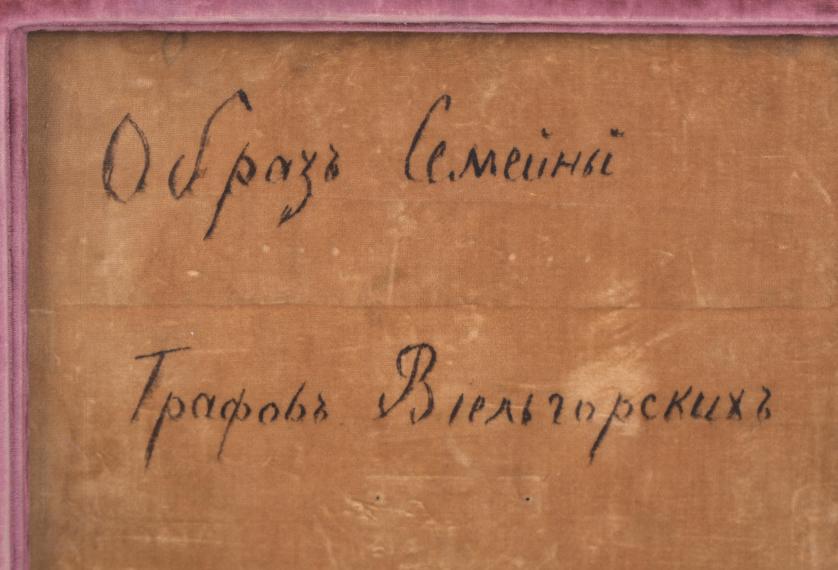 Образъ Семейнй
Графовъ Віельгорскихъ